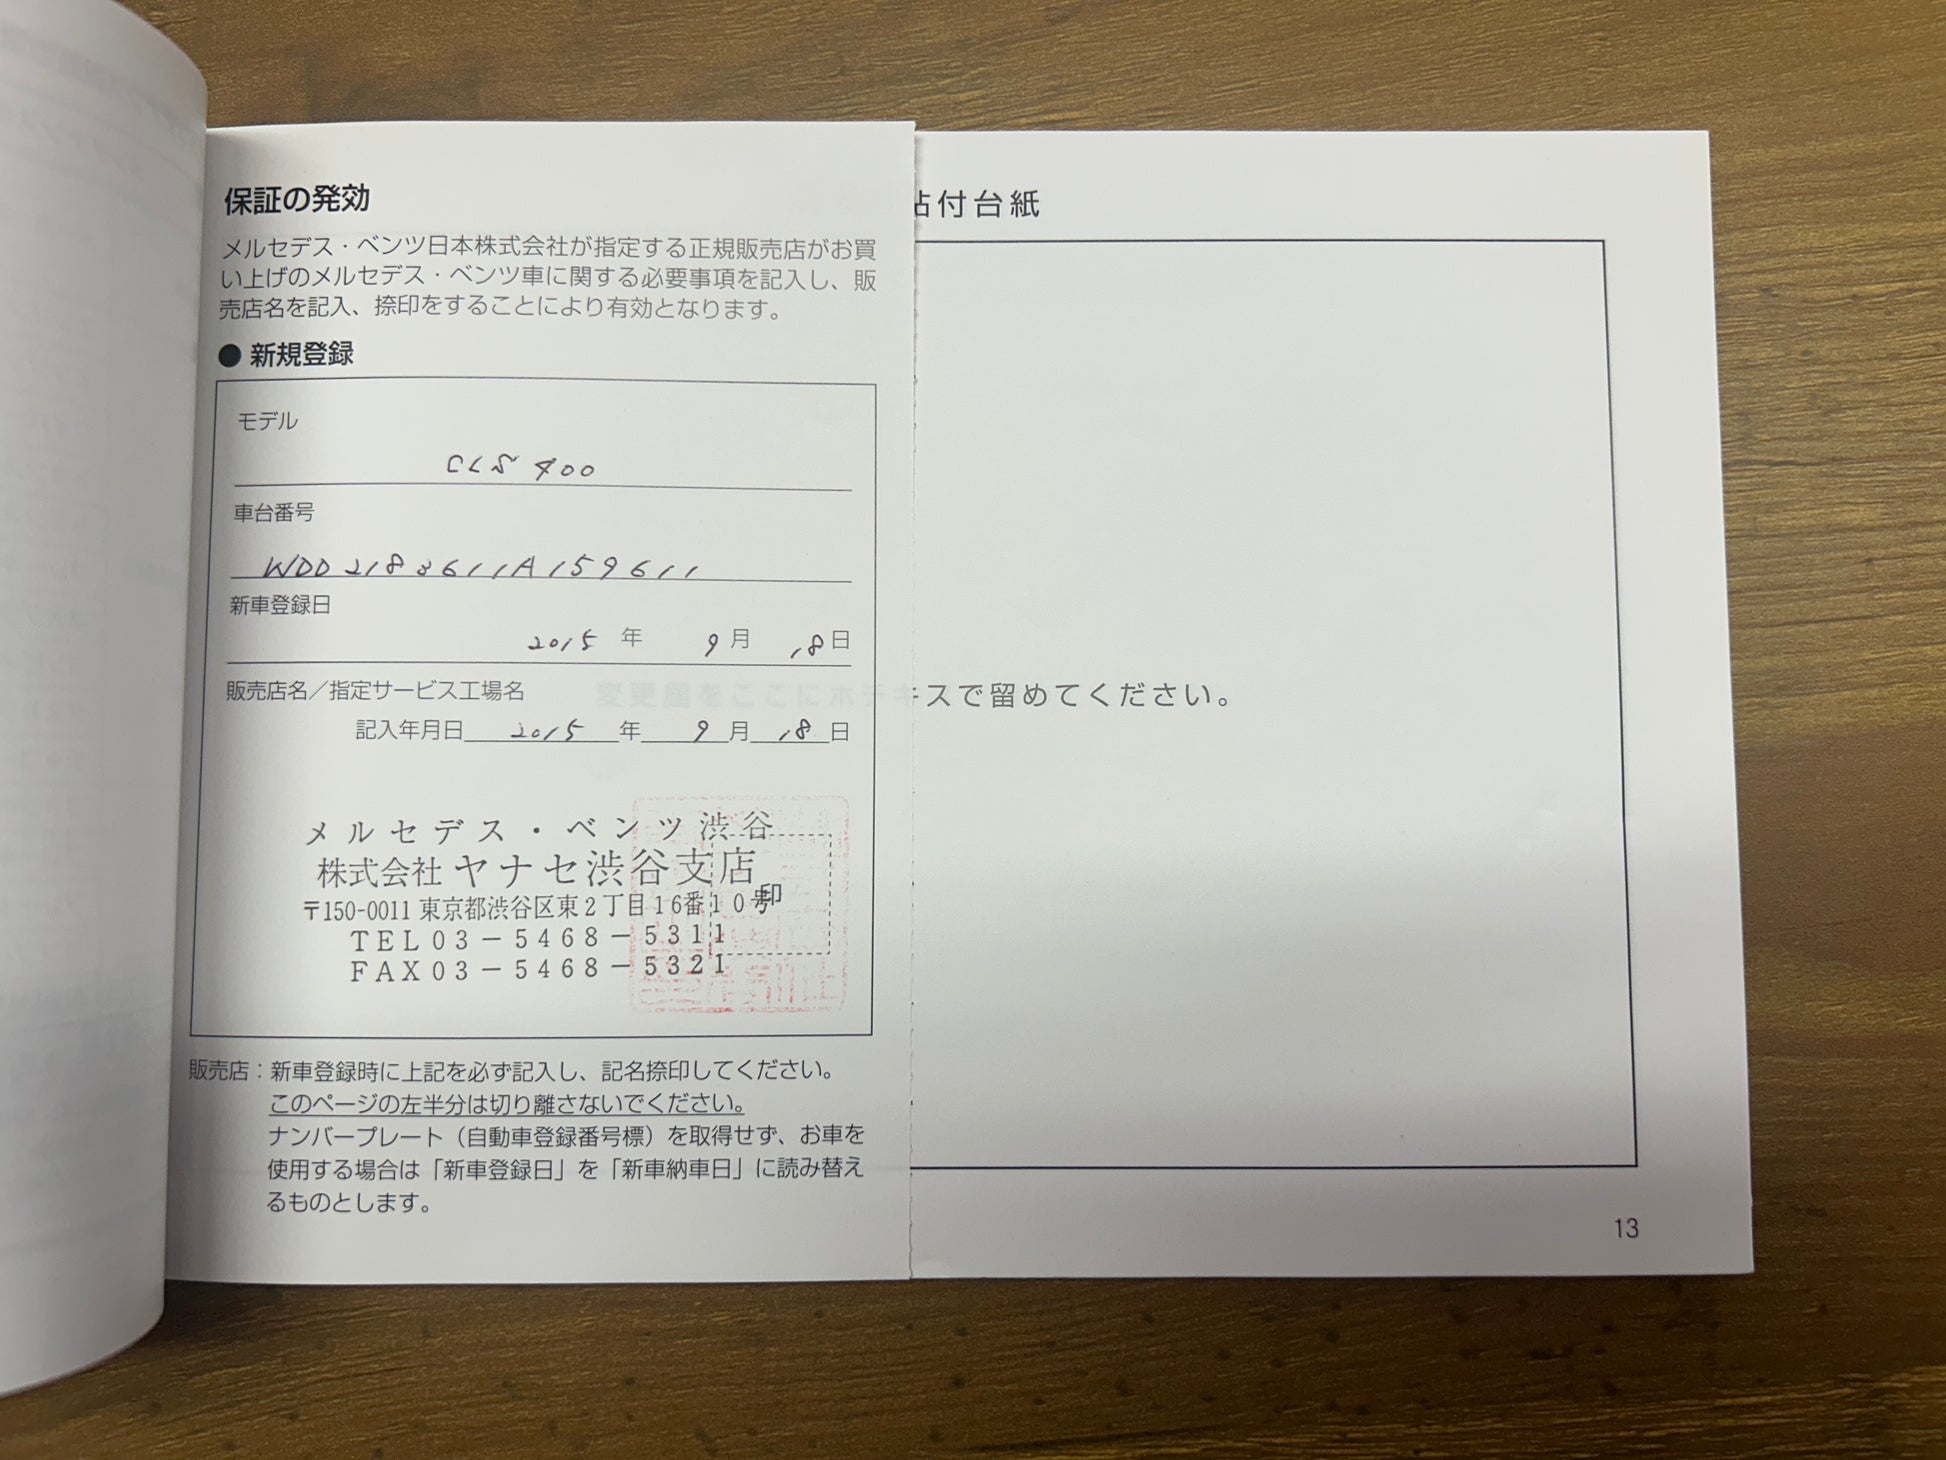 保証の発効
メルセデス・ベンツ日本株式会社が指定する正規販売店がお買
い上げのメルセデス・ベンツ車に関する必要事項を記入し、販
売店名を記入、捺印をすることにより有効となります。
● 新規登録
モデル
CLS 400
車台番号
WDD2183611A159611
新車登録日
2015 年 9 月 18 日
販売店名／指定サービス工場名
記入年月日 2015 年 9 月 18 日
メルセデス・ベンツ渋谷
株式会社ヤナセ渋谷支店
印
〒150-0011 東京都渋谷区東2丁目16番10号
TEL03-5468-5311
FAX03-5468-5321
販売店：新車登録時に上記を必ず記入し、記名捺印してください。
このページの左半分は切り離さないでください。
ナンバープレート（自動車登録番号標）を取得せず、お車を
使用する場合は「新車登録日」を「新車納車日」に読み替え
るものとします。
付台紙
スで留めてください。
13